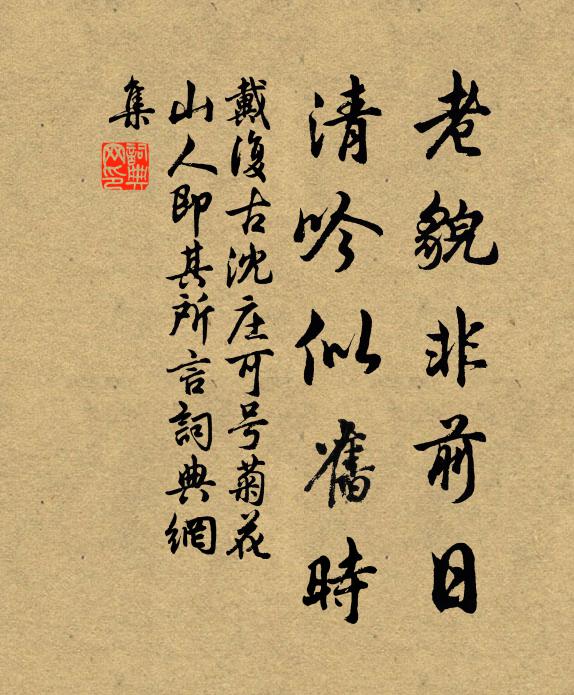 老貌非前日
清吟似舊時
戴復古沈庄可号菊花
山人即其所言詞典網
集
詞典
网印